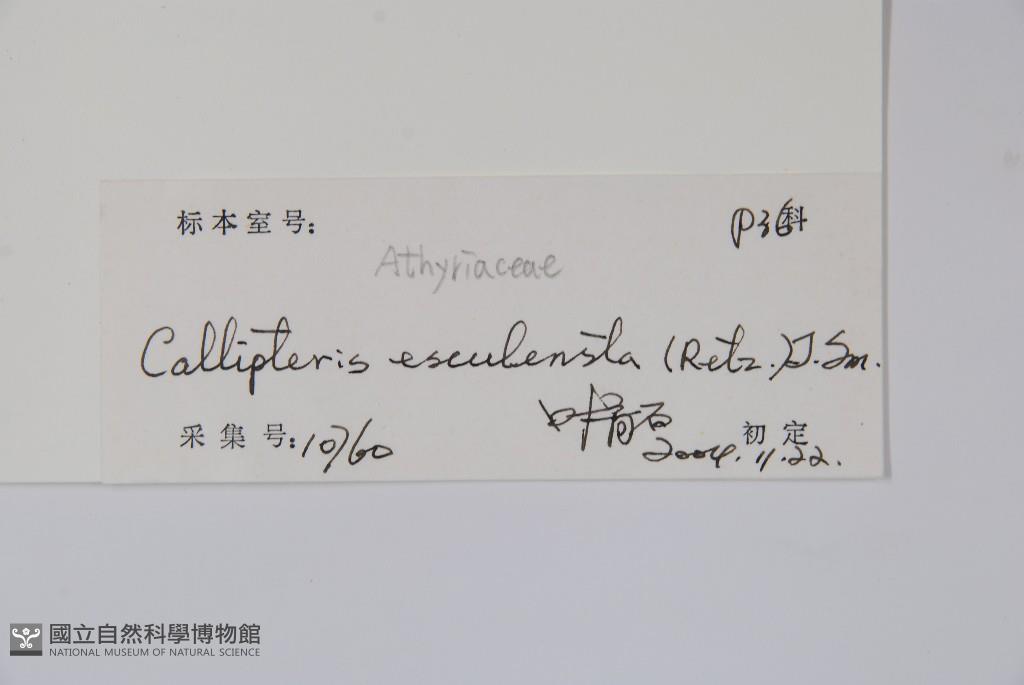 标本室号: P36科
Athyriaceae
Callipteris esculensta (Retz.) J. Sm.
采集号: 10760 初定
2004.11.22.
國立自然科學博物館
NATIONAL MUSEUM OF NATURAL SCIENCE